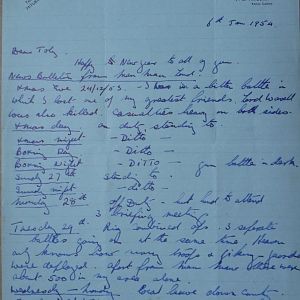 6th Jan 1954
Dear Toby
Happy New year to all of you.
News Bulletin from Mau Mau Land!
Xmas Eve 24/12/53. - I was in a bitter battle in
which I lost one of my greatest friends. Lord Wavell
was also killed. Casualties heavy on both sides.
Xmas day on duty standing to.
Xmas night - Ditto -
Boxing Day - Ditto -
Boxing Night - DITTO - gun battle in dark.
Sunday 27th standing to.
Sunday night - ditto -
Monday 28th off Duty - but had to attend
3 briefing meetings
Tuesday 29th. Big combined ops. 3 separate
battles going on at the same time. Heaven
only knows how many troops &
were deployed - apart from Mau Mau there were
about 5000 in area alone.
Wednesday - local leave